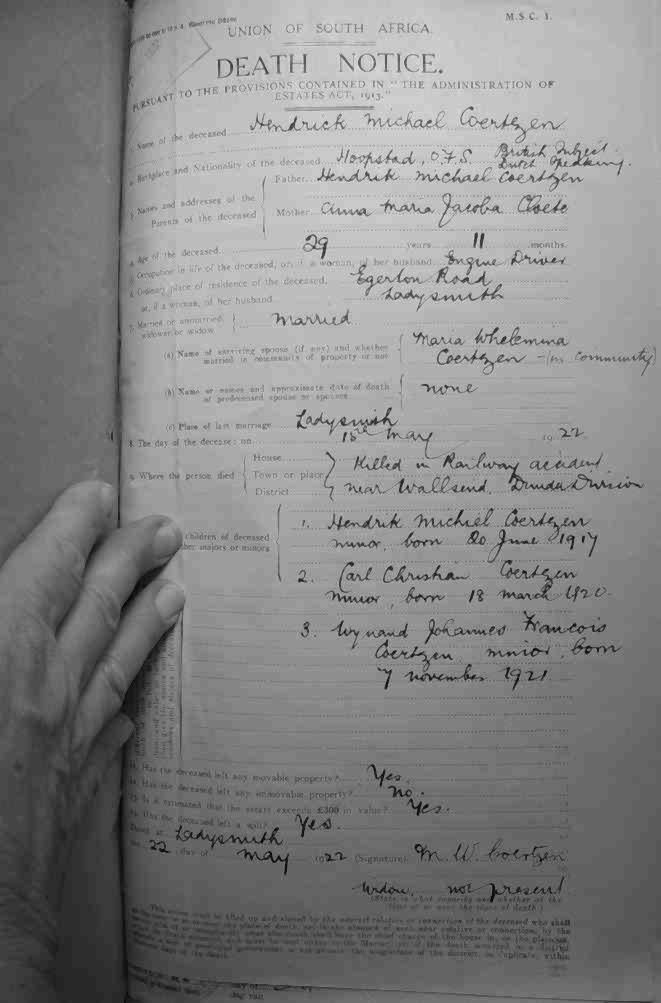 M.S.C. 1.
UNION OF SOUTH AFRICA.
DEATH NOTICE.
PURSUANT TO THE PROVISIONS CONTAINED IN "THE ADMINISTRATION OF
ESTATES ACT, 1913."
1. Name of the deceased Hendrick Michael Coertzen
2. Birthplace and Nationality of the deceased Hoopstad, O.F.S. British Subject.
Dutch Speaking.
3. Names and addresses of the Parents of the deceased
Father Hendrik Michael Coertzen
Mother Anna Maria Jacoba Cloete
4. Age of the deceased 29 years 11 months.
5. Occupation in life of the deceased, or, if a woman, of her husband Engine Driver
6. Ordinary place of residence of the deceased, Egerton Road
or, if a woman, of her husband Ladysmith
7. Married or unmarried, widower or widow Married
(a) Name of surviving spouse (if any) and whether Maria Whelemina
married in community of property or not Coertzen - (in community)
(b) Name or names and approximate date of death none
of predeceased spouse or spouses
(c) Place of last marriage Ladysmith
8. The day of the decease: on 18th May 1922
9. Where the person died
House Killed in Railway accident
Town or place near Wallsend, Dundee Division
District
children of deceased
majors or minors
1. Hendrik Michiel Coertzen
minor, born 20 June 1917
2. Carl Christian Coertzen
minor, born 18 March 1920.
3. Wynand Johannes Francois
Coertzen minor, born
7 November 1921
Has the deceased left any movable property? Yes.
Has the deceased left any immovable property? No.
Is it estimated that the estate exceeds £300 in value? Yes.
Has the deceased left a will? Yes.
Dated at Ladysmith
the 22 day of May 1922 (Signature) M. W. Coertzen
Widow, not present
(State in what capacity and whether at the
time of or near the place of death.)